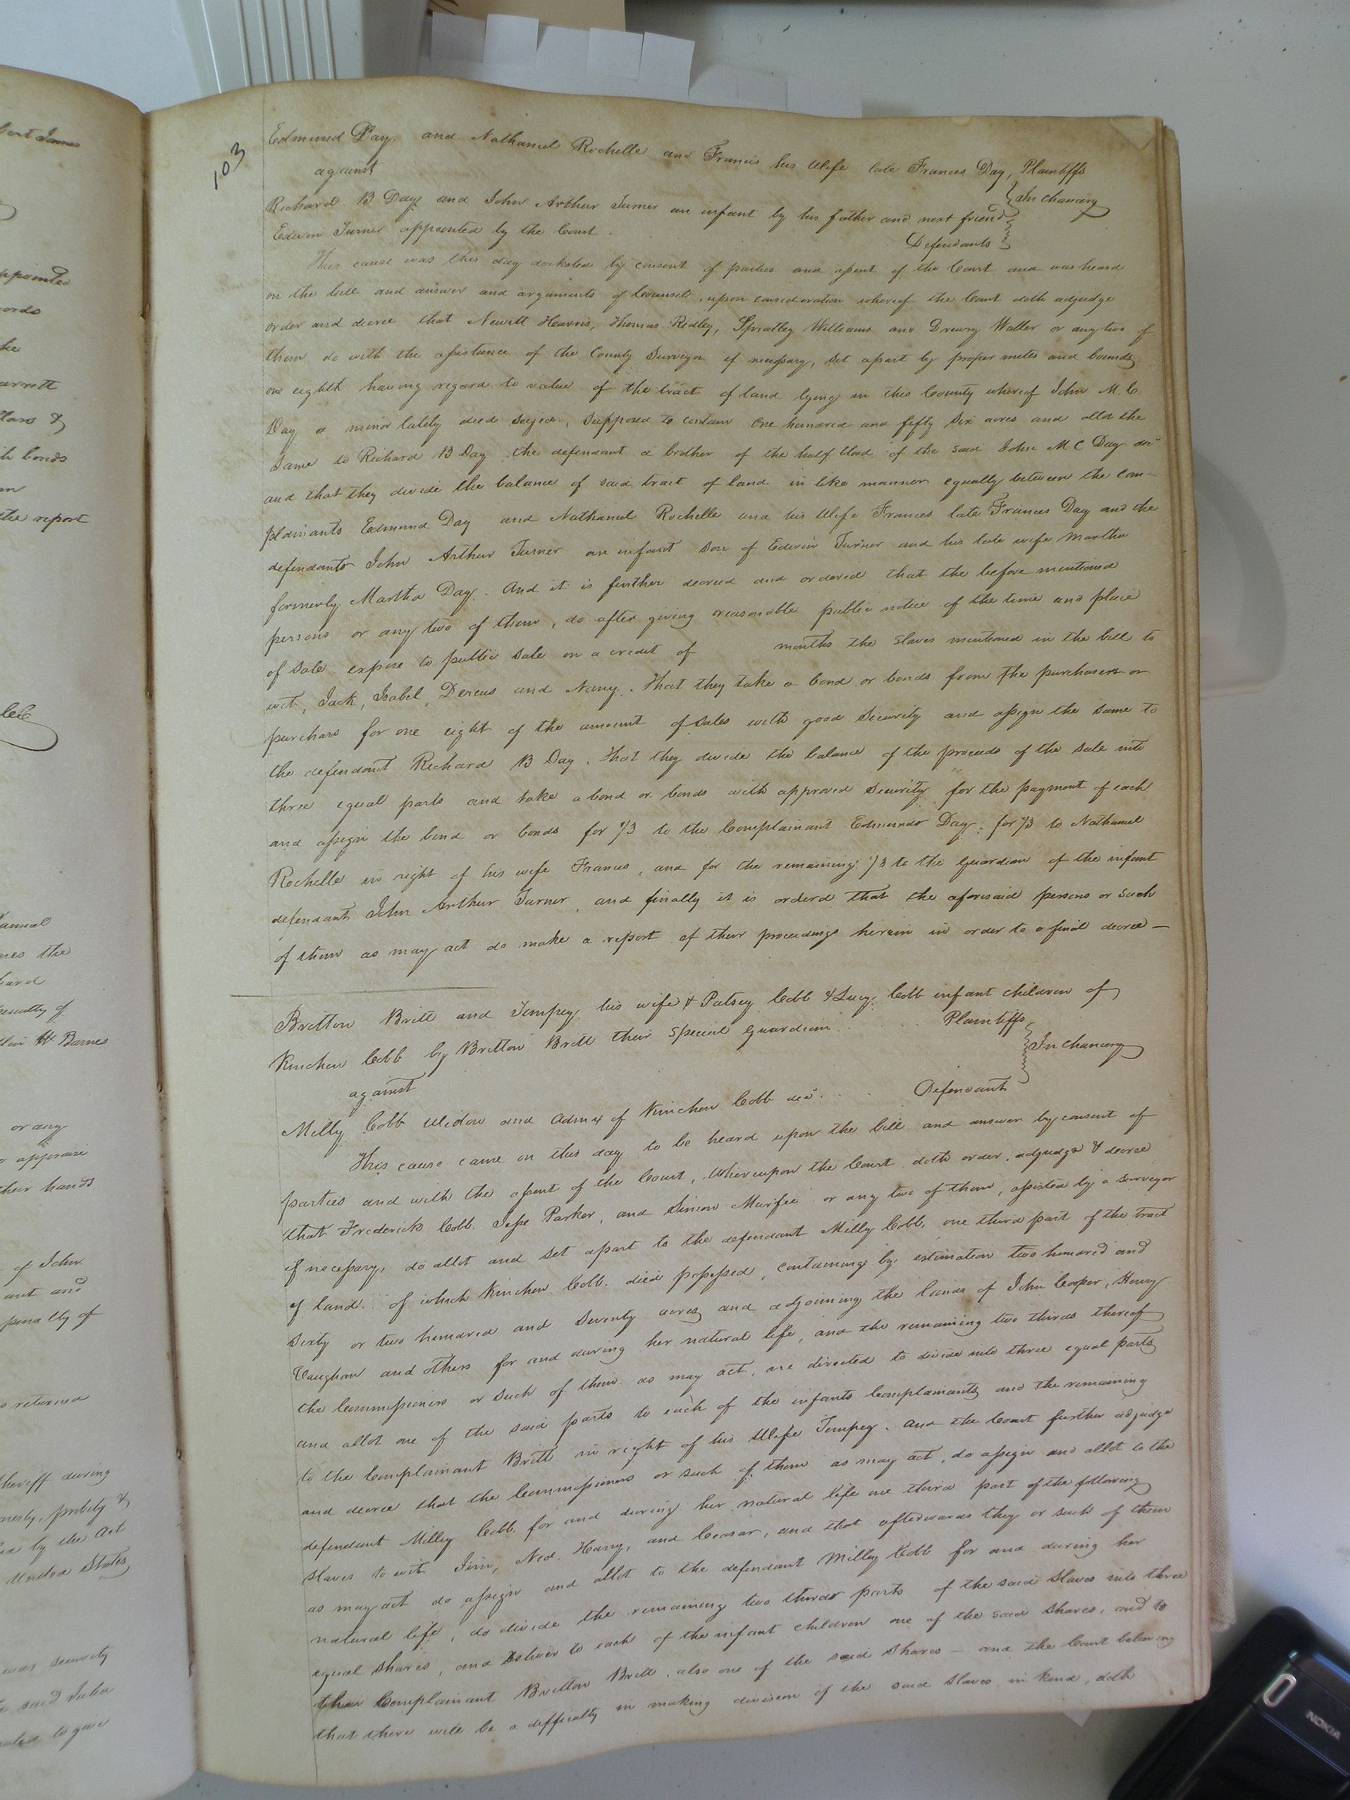 103
Edmund Day and Nathaniel Rochelle and Francis his Wife late Frances Day, Plaintiffs
against
In chancery
Richard B Day and John Arthur Turner an infant by his father and next friend
Edwin Turner appointed by the Court.
Defendants
This cause was this day docketed by consent of parties and assent of the Court and was heard
on the bill and answer and arguments of Counsel, upon consideration whereof the Court doth adjudge
order and decree that Newitt Harris, Thomas Ridley, Spratley Williams and Drewry Waller or any two of
them do with the assistance of the County Surveyor if necessary, set apart by proper metes and bounds
one eighth having regard to value of the tract of land lying in this County whereof John M. C.
Day a minor lately died seized, supposed to contain One hundred and fifty six acres and allot the
same to Richard B Day the defendant a brother of the half blood of the said John M C Day decd
and that they divide the balance of said tract of land in like manner equally between the com-
plainants Edmund Day and Nathaniel Rochelle and his Wife Frances late Frances Day and the
defendants John Arthur Turner an infant son of Edwin Turner and his late wife Martha
formerly Martha Day. And it is further decreed and ordered that the before mentioned
persons or any two of them, do after giving reasonable public notice of the time and place
of sale expose to public sale on a credit of months the slaves mentioned in the bill to
wit, Jack, Isabel, Dercus and Nancy. That they take a bond or bonds from the purchasers or
purchase for one eight of the amount of sales with good security and assign the same to
the defendant Richard B Day. That they divide the balance of the proceeds of the sale into
three equal parts and take a bond or bonds with approved security for the payment of each
and assign the bond or bonds for 1/3 to the Complainant Edmund Day, for 1/3 to Nathaniel
Rochelle in right of his wife Frances, and for the remaining 1/3 to the guardian of the infant
defendants John Arthur Turner, and finally it is orderd that the aforesaid persons or such
of them as may act do make a report of their proceedings herein in order to a final decree —
Britton Britt and Tempey his wife & Patsey Cobb & Lucy Cobb infant children of
Kinchen Cobb by Britton Britt their special guardian Plaintiffs
In chancery
against
Milly Cobb Widow and admx of Kinchen Cobb decd. Defendant
This cause came on this day to be heard upon the bill and answer by consent of
parties and with the assent of the Court, Whereupon the Court doth order, adjudge & decree
that Frederick Cobb, Jesse Parker, and Simon Murfee or any two of them, assisted by a surveyor
if necessary, do allot and set apart to the defendant Milly Cobb, one third part of the tract
of land of which Kinchen Cobb died possessed, containing by estimation two hundred and
sixty or two hundred and seventy acres and adjoining the lands of John Cooper, Henry
Vaughan and others for and during her natural life, and the remaining two thirds thereof
the Commissioners or such of them as may act, are directed to divide into three equal parts
and allot one of the said parts to each of the infants Complainants and the remaining
to the Complainant Britt in right of his Wife Tempey. And the Court further adjudge
and decree that the Commissioners or such of them as may act, do assign and allot to the
defendant Milley Cobb, for and during her natural life one third part of the following
slaves to wit Jim, Ned, Harry, and Ceasar, and that afterwards they or such of them
as may act do assign and allot to the defendant Milley Cobb for and during her
natural life, do divide the remaining two thirds parts of the said slaves into three
equal shares, and deliver to each of the infant children one of the said shares, and to
the Complainant Britton Britt, also one of the said shares — and the Court believing
that there will be a difficulty in making division of the said slaves in kind, doth